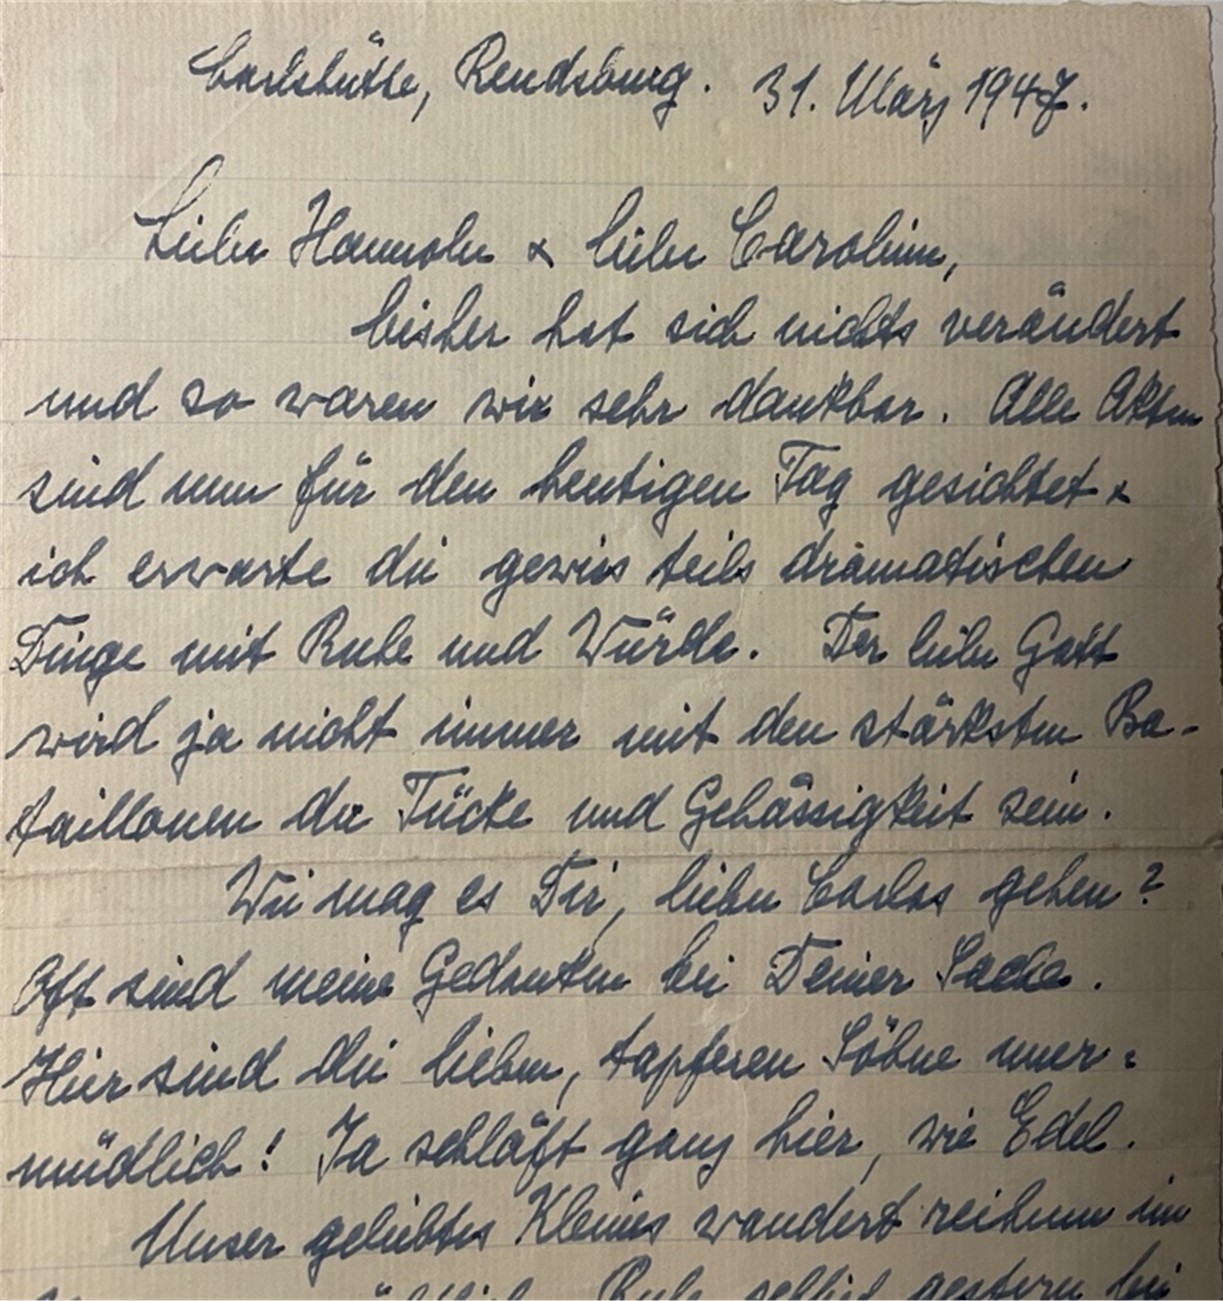 Carlshütte, Rendsburg. 31. März 1947.
Liebe Hannole & liebe Caroline,
bisher hat sich nichts verändert
und so waren wir sehr dankbar. Alle Akten
sind nun für den heutigen Tag gesichtet &
ich erwarte die gewiss teils dramatischen
Dinge mit Ruhe und Würde. Der liebe Gott
wird ja nicht immer mit den stärksten Ba-
taillonen der Tücke und Gehässigkeit sein.
Wie mag es Dir, lieber Carlos gehen?
Oft sind meine Gedanken bei Deiner Sache.
Hier sind die lieben, tapferen Söhne uner-
müdlich! Ja schläft ganz hier, wie Edel.
Unser geliebtes Kleines wandert reihum im
Ruhe selbst gestern bei